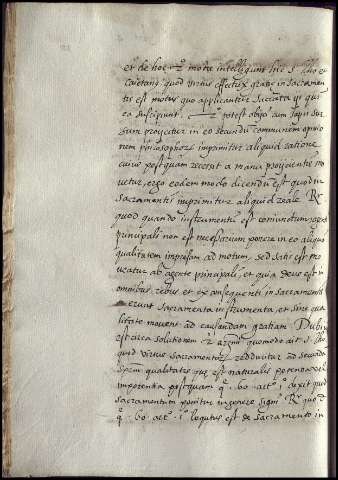 et de hoc motu intelligunt hic S. Tho. et
Caietanus quod virtus effectiva gratiae in sacramen
tis est motus quo applicantur sacramenta qui
ea suscipiunt. potest obijci nam lapis sur
sum proijcitur in eo secundum communem opinio
nem philosophorum imprimitur aliquid ratione
cuius postquam recessit a manu proijcientis mo
uetur, ergo eodem modo dicendum est quod in
sacramentis imprimitur aliquid reale. Rx
quod quando instrumentum est coniunctum agenti
principali non est necessarium ponere in eo aliquam
qualitatem impressam ad motum, sed satis est mo
ueatur ab agente principali, et quia deus est in
omnibus rebus et ex consequenti in sacramentis
erunt sacramenta instrumenta, et sine qua
litate mouent ad causandam gratiam. Dubium
est circa solutionem 2 argumenti quomodo dicit S. Tho.
quod virtus sacramentorum redducitur ad secundam
speciem qualitatis quae est naturalis potentia vel
impotentia postquam q. 60 art. 1 dixit quod
sacramentum ponitur in genere signi. Rx quod
q. 60 art. 1 loqutus est de sacramento in